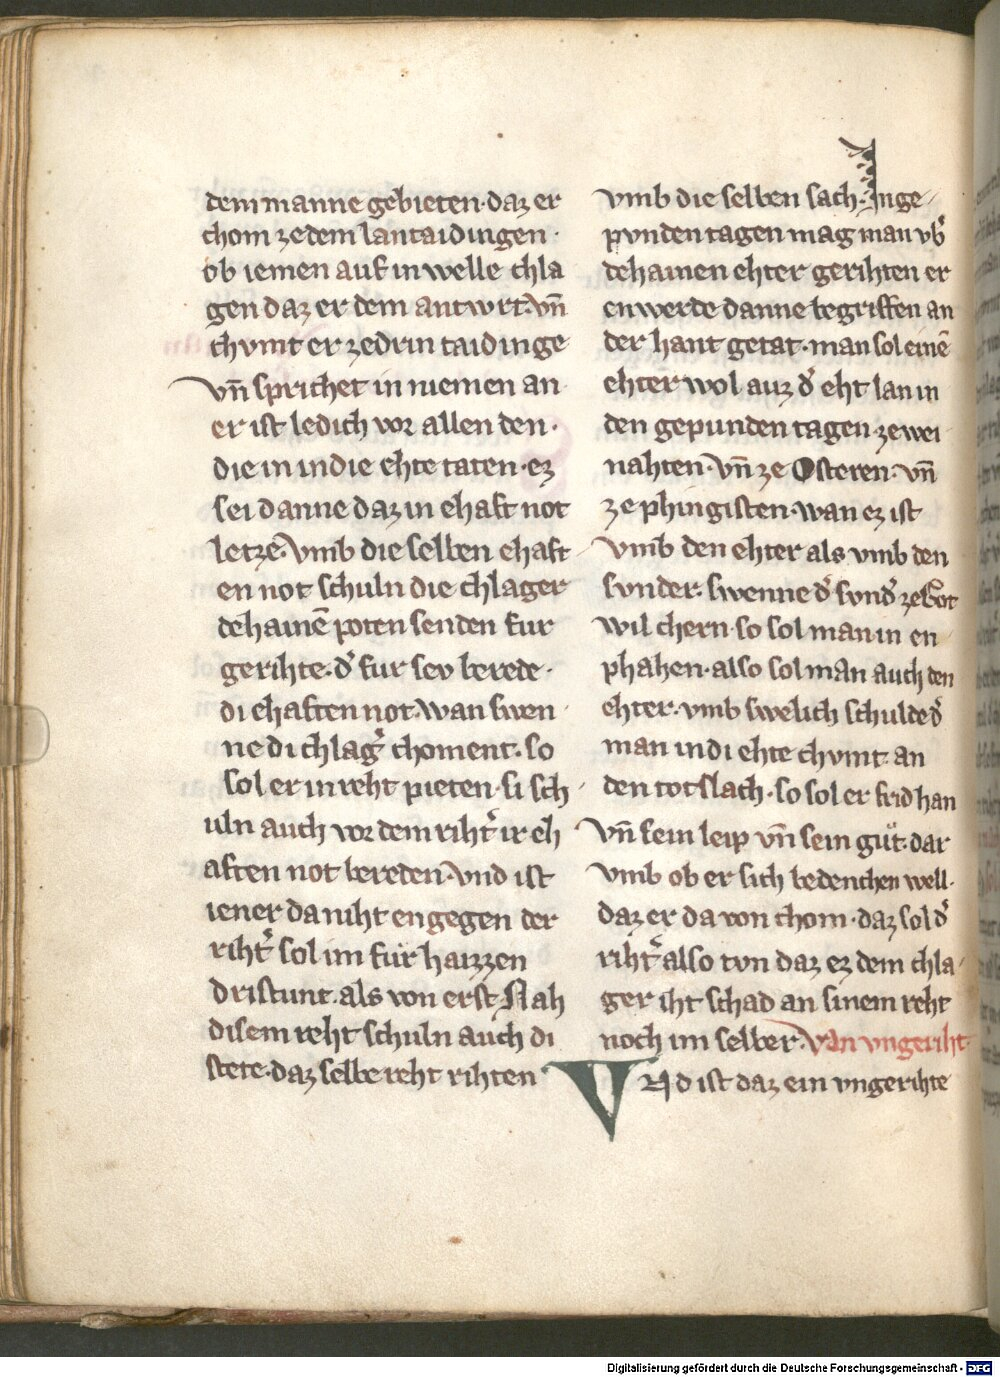 dem manne gebieten· daz er
chom ze dem lantaidingen·
ob iemen auf in welle chla
gen daz er dem antwrt· vn̄
chvmt er ze drin taidinge
vn̄ sprichet in niemen an·
er ist ledich vor allen den·
die in in die ehte taten· ez
sei danne daz in ehaft not
letze· vmb die selben ehaft
en not schuln die chlager
dehainē poten senden fur
gerihte· d᾽ fur sev berede·
di ehaften not· wan swen
ne di chlag᾽ choment· so
sol er in reht pieten· si sch
uln auch vor dem riht᾽ ir eh
aften not bereden· vnd ist
iener da niht engegen der
riht᾽ sol im für haizzen
dristunt· als von erst· Nah
disem reht schuln auch di
stete· daz selbe reht rihten
vmb die selben sach· Inge
pvnden tagen mag man vb᾽
dehainen ehter gerihten er
en werde danne begriffen an
der hant getat· man sol einē
ehter wol auz d᾽ eht lan in
den gepunden tagen· ze wei
nahten· vn̄ ze Osteren· vn̄
ze phingisten· wan ez ist
vmb den ehter als vmb den
svnder· swenne d᾽ svnd᾽ ze Got
wil chern· so sol man in en
phahen· also sol man auch den
ehter· vmb swelich schulde d᾽
man in di ehte chvmt· an
den totslach· so sol er frid han
vn̄ sein leip vn̄ sein gůt· dar
vmb ob er sich bedenchen well·
daz er da von chom· daz sol d᾽
riht᾽ also tvn daz ez dem chla
ger iht schad an sinem reht
noch im selber· Van vngeriht·
VNd ist daz ein vngerihte
Digitalisierung gefördert durch die Deutsche Forschungsgemeinschaft - DFG